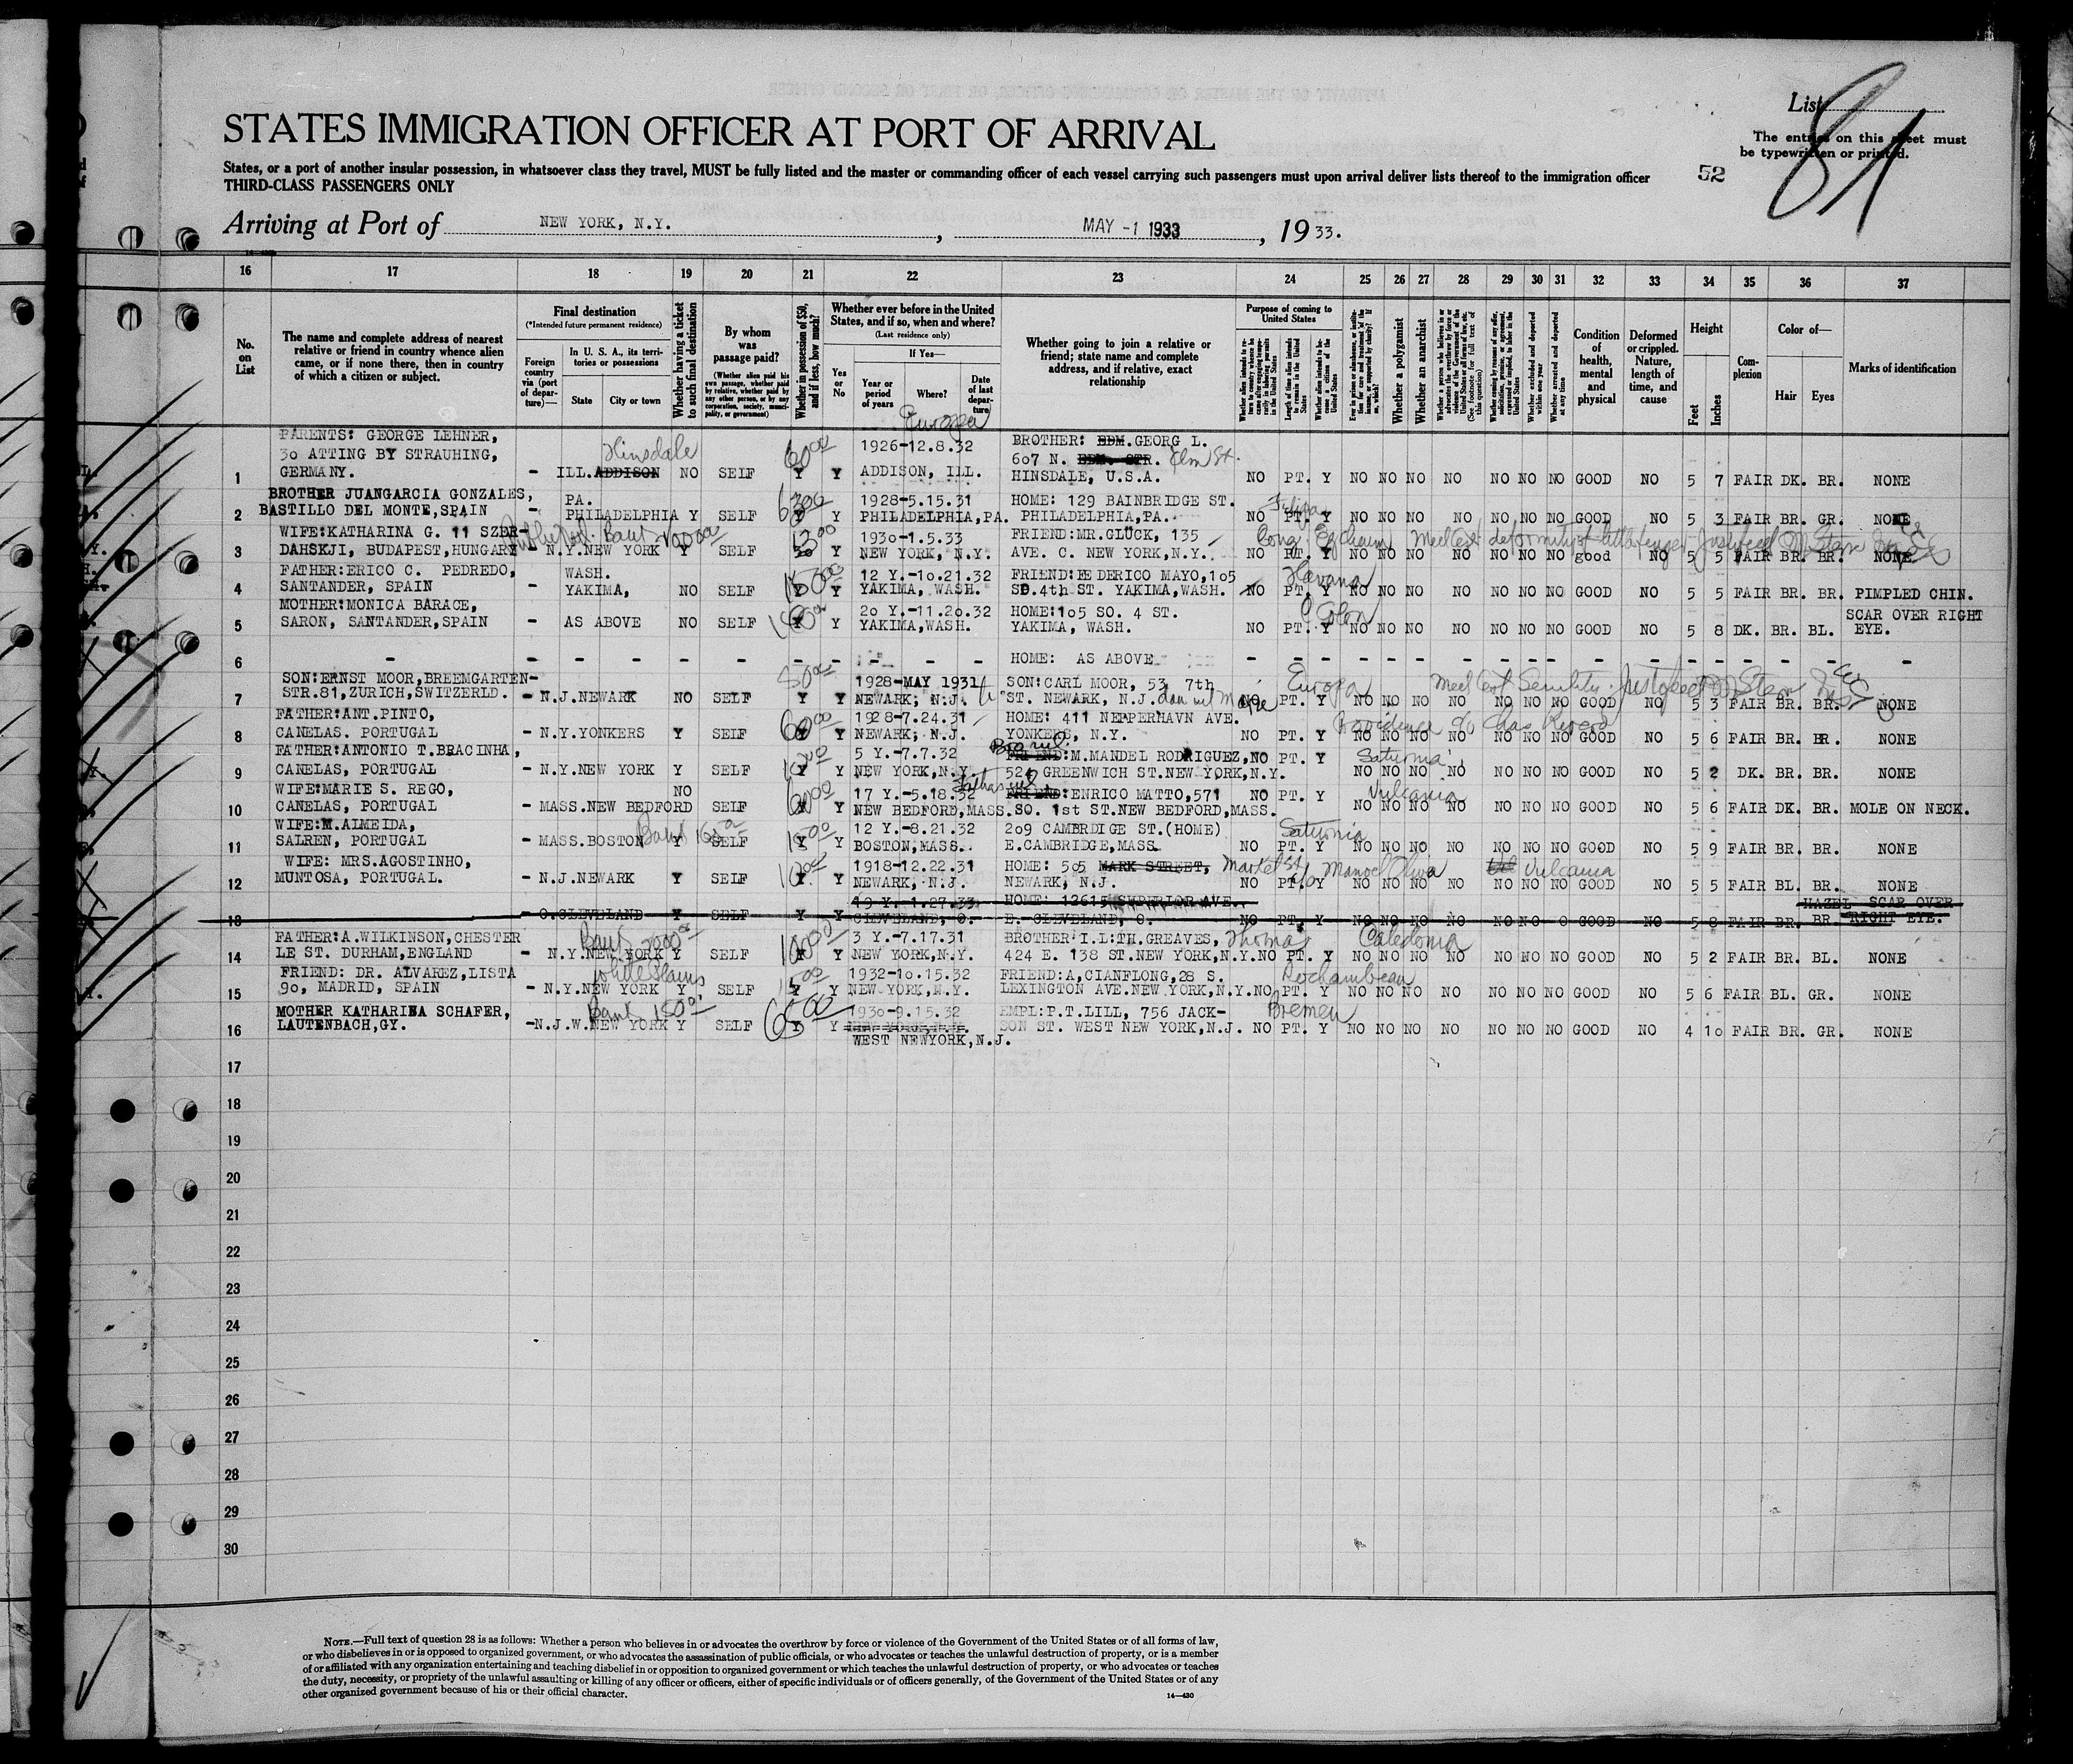 List
81
STATES IMMIGRATION OFFICER AT PORT OF ARRIVAL
The entries on this sheet must
be typewritten or printed.
States, or a port of another insular possession, in whatsoever class they travel, MUST be fully listed and the master or commanding officer of each vessel carrying such passengers must upon arrival deliver lists thereof to the immigration officer
52
THIRD-CLASS PASSENGERS ONLY
Arriving at Port of NEW YORK, N.Y. , MAY -1 1933 , 19 33.
16 17 18 19 20 21 22 23 24 25 26 27 28 29 30 31 32 33 34 35 36 37
No. on List
The name and complete address of nearest relative or friend in country whence alien came, or if none there, then in country of which a citizen or subject.
Final destination
(*Intended future permanent residence)
Foreign country via (port of departure)—
In U. S. A., its territories or possessions
State
City or town
Whether having a ticket to such final destination
By whom was passage paid?
(Whether alien paid his own passage, whether paid by relative, whether paid by any other person, or by any corporation, society, municipality, or government)
Whether in possession of $50, and if less, how much?
Whether ever before in the United States, and if so, when and where?
(Last residence only)
Yes or No
If Yes—
Year or period of years
Where?
Date of last departure
Whether going to join a relative or friend; state name and complete address, and if relative, exact relationship
Purpose of coming to United States
Whether alien intends to return to country whence he came after engaging temporarily in laboring pursuits in the United States
Length of time alien intends to remain in the United States
Whether alien intends to become a citizen of the United States
Ever in prison or almshouse, or institution for care and treatment of the insane, or supported by charity? If so, which?
Whether a polygamist
Whether an anarchist
Whether a person who believes in or advocates the overthrow by force or violence of the Government of the United States or all forms of law, etc. (See footnote for full text of this question)
Whether coming by reason of any offer, solicitation, promise, or agreement, expressed or implied, to labor in the United States
Whether excluded and deported within one year
Whether arrested and deported at any time
Condition of health, mental and physical
Deformed or crippled. Nature, length of time, and cause
Height
Feet
Inches
Complexion
Color of—
Hair
Eyes
Marks of identification
Europa
PARENTS: GEORGE LEHNER,
Hinsdale 60.00 1926-12.8.32 BROTHER: EDM. GEORG L.
30 ATTING BY STRAUHING, 607 N. Elm St.
1 GERMANY. - ILL. ADDISON NO SELF Y Y ADDISON, ILL. HINSDALE, U.S.A. NO PT. Y NO NO NO NO NO NO NO GOOD NO 5 7 FAIR DK. BR. NONE
BROTHER JUANGARCIA GONZALES, PA. 1928-5.15.31 HOME: 129 BAINBRIDGE ST.
2 BASTILLO DEL MONTE,SPAIN - PHILADELPHIA Y SELF Y Y PHILADELPHIA,PA. PHILADELPHIA,PA. NO PT. Y NO NO NO NO NO NO NO GOOD NO 5 3 FAIR BR. GR. NONE
WIFE:KATHARINA G. 11 SZER- Bank 1930-1.5.33 FRIEND:MR.GLÜCK, 135
3 DAHSKJI, BUDAPEST,HUNGARY - N.Y.NEW YORK Y SELF 50 Y NEW YORK, N.Y. AVE. C. NEW YORK,N.Y. NO PT. Y NO NO NO NO NO NO NO good NO 5 5 FAIR BR. BR. NONE
FATHER:ERICO C. PEDREDO, WASH. 12 Y.-10.21.32 FRIEND:FEDERICO MAYO,105 Havana
4 SANTANDER, SPAIN - YAKIMA, NO SELF Y Y YAKIMA, WASH. SO.4th ST. YAKIMA,WASH. NO PT. Y NO NO NO NO NO NO NO GOOD NO 5 5 FAIR BR. BR. PIMPLED CHIN.
MOTHER:MONICA BARACE, 20 Y.-11.20.32 HOME:105 SO. 4 ST. SCAR OVER RIGHT
5 SARON, SANTANDER,SPAIN - AS ABOVE NO SELF Y Y YAKIMA,WASH. YAKIMA, WASH. NO PT. Y NO NO NO NO NO NO NO GOOD NO 5 8 DK. BR. BL. EYE.
6 - - - - - - - - - - HOME: AS ABOVE - - - - - - - - - - - - - - - - -
SON:ERNST MOOR,BREEMGARTEN- 50.00 1928-MAY 1931 SON:CARL MOOR, 53, 7th Europa Med Cert Senility
7 STR.81,ZURICH,SWITZERLD. - N.J.NEWARK NO SELF Y Y NEWARK, N.J. ST. NEWARK, N.J. NO PT. Y NO NO NO NO NO NO NO GOOD NO 5 3 FAIR BR. BR. NONE
FATHER:ANT.PINTO, 60.00 1928-7.24.31 HOME: 411 NEPPERHAVN AVE. Providence
8 CANELAS. PORTUGAL - N.Y.YONKERS Y SELF Y Y NEWARK, N.J. YONKERS, N.Y. NO PT. Y NO NO NO NO NO NO NO GOOD NO 5 6 FAIR BR. BR. NONE
FATHER:ANTONIO T.BRACINHA, 5 Y.-7.7.32 FRIEND:M.MANDEL RODRIGUEZ,NO PT. Y Saturnia
9 CANELAS, PORTUGAL - N.Y.NEW YORK Y SELF Y Y NEW YORK,N.Y. 524 GREENWICH ST.NEW YORK,N.Y. NO NO NO NO NO NO NO GOOD NO 5 2 DK. BR. BR. NONE
WIFE:MARIE S. REGO, NO 60.00 17 Y.-5.18.32 FRIEND:ENRICO MATTO,571 NO PT. Y Vulcania
10 CANELAS, PORTUGAL - MASS.NEW BEDFORD SELF Y Y NEW BEDFORD,MASS. SO. 1st ST.NEW BEDFORD,MASS. NO NO NO NO NO NO NO GOOD NO 5 6 FAIR DK. BR. MOLE ON NECK.
WIFE:M.ALMEIDA, Bank 12 Y.-8.21.32 209 CAMBRDIGE ST.(HOME) Saturnia
11 SALREN, PORTUGAL - MASS.BOSTON Y SELF Y Y BOSTON,MASS. E.CAMBRIDGE,MASS. NO PT. Y NO NO NO NO NO NO NO GOOD NO 5 9 FAIR BR. BR. NONE
WIFE: MRS.AGOSTINHO, 1918-12.22.31 HOME: 505 MARK STREET, Market St. Manoel Oliva Vulcania
12 MUNTOSA, PORTUGAL. - N.J.NEWARK Y SELF Y Y NEWARK, N.J. NEWARK, N.J. NO PT. Y NO NO NO NO NO NO NO GOOD NO 5 5 FAIR BL. BR. NONE
19 Y.-1.27.33 HOME: 12615 SUPERIOR AVE. HAZEL SCAR OVER
13 - O.CLEVELAND Y SELF Y Y CLEVELAND, O. E. CLEVELAND, O. NO PT. Y NO NO NO NO NO NO O GOOD NO 5 8 FAIR BR. BR. RIGHT EYE.
FATHER:A.WILKINSON,CHESTER Bank 100.00 3 Y.-7.17.31 BROTHER I.L:TH.GREAVES, Thomas Caledonia
14 LE ST. DURHAM,ENGLAND - N.Y.NEW YORK Y SELF Y Y NEW YORK,N.Y. 424 E. 138 ST.NEW YORK,N.Y.NO PT. Y NO NO NO NO NO NO NO GOOD NO 5 2 FAIR BR. BL. NONE
FRIEND: DR. ALVAREZ,LISTA White Plains 1932-10.15.32 FRIEND:A,CIANFLONG,28 S. Rochambeau
15 90, MADRID, SPAIN - N.Y.NEW YORK Y SELF Y Y NEW YORK,N.Y. LEXINGTON AVE.NEW YORK,N.Y.NO PT. Y NO NO NO NO NO NO NO GOOD NO 5 6 FAIR BL. GR. NONE
MOTHER KATHARINA SCHAFER, Bank 1930-9.15.32 EMPL:P.T.LILL, 756 JACK- Bremen
16 LAUTENBACH,GY. -N.J.W.NEW YORK Y SELF Y Y NEW YORK,N.Y. SON ST. WEST NEW YORK,N.J. NO PT. Y NO NO NO NO NO NO NO GOOD NO 4 10 FAIR BR. GR. NONE
WEST NEWYORK,N.J.
17
18
19
20
21
22
23
24
25
26
27
28
29
30
NOTE.—Full text of question 28 is as follows: Whether a person who believes in or advocates the overthrow by force or violence of the Government of the United States or of all forms of law,
or who disbelieves in or is opposed to organized government, or who advocates the assassination of public officials, or who advocates or teaches the unlawful destruction of property, or is a member
of or affiliated with any organization entertaining and teaching disbelief in or opposition to organized government or which teaches the unlawful destruction of property, or who advocates or teaches
the duty, necessity, or propriety of the unlawful assaulting or killing of any officer or officers, either of specific individuals or of officers generally, of the Government of the United States or of any
other organized government because of his or their official character.
14—430